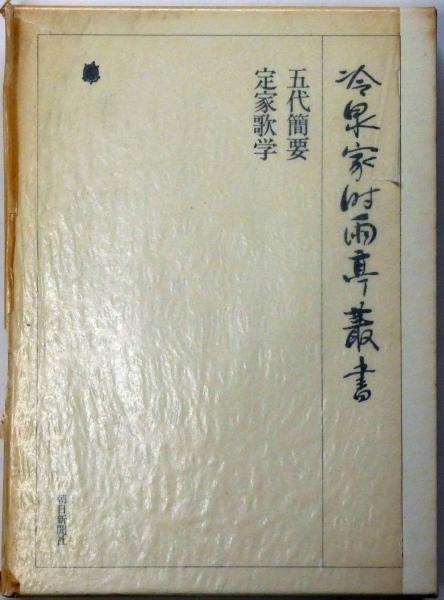 冷泉家時雨亭叢書
五代簡要
定家歌学
朝日新聞社